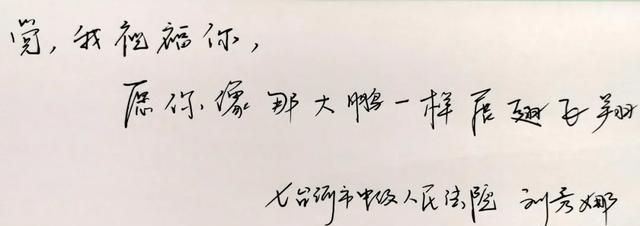 党，我祝福你，
愿你像那大鹏一样展翅飞翔
七台河市中级人民法院 刘秀娜